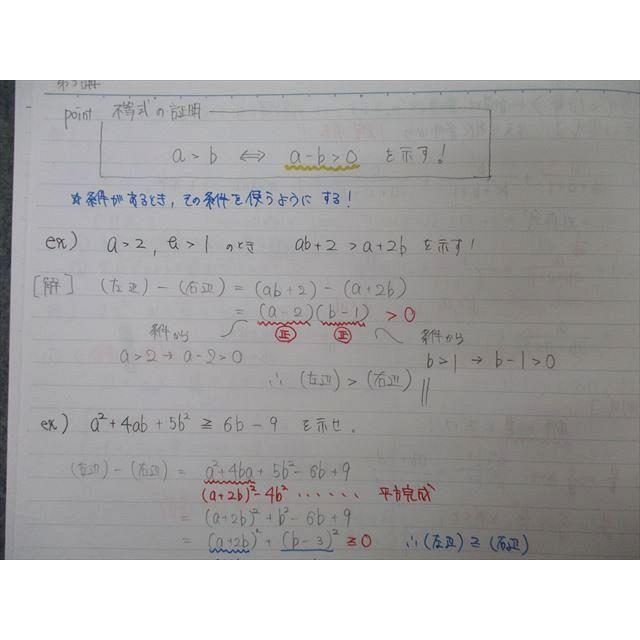 point 不等式の証明
a > b ⇔ a-b>0 を示す!
*条件があるとき, その条件を使うようにする!
ex) a>2, b>1 のとき ab+2 > a+2b を示す!
[解] (左辺) - (右辺) = (ab+2) - (a+2b)
= (a-2)(b-1) > 0
正 正
条件から a>2 → a-2>0
条件から b>1 → b-1>0
∴ (左辺) > (右辺) //
ex) a²+4ab+5b² ≧ 6b-9 を示せ。
(左辺) - (右辺) = a²+4ba+5b²-6b+9
(a+2b)²-4b² ...... 平方完成
= (a+2b)²+b²-6b+9
= (a+2b)²+(b-3)² ≧0 ∴(左辺) ≧ (右辺)